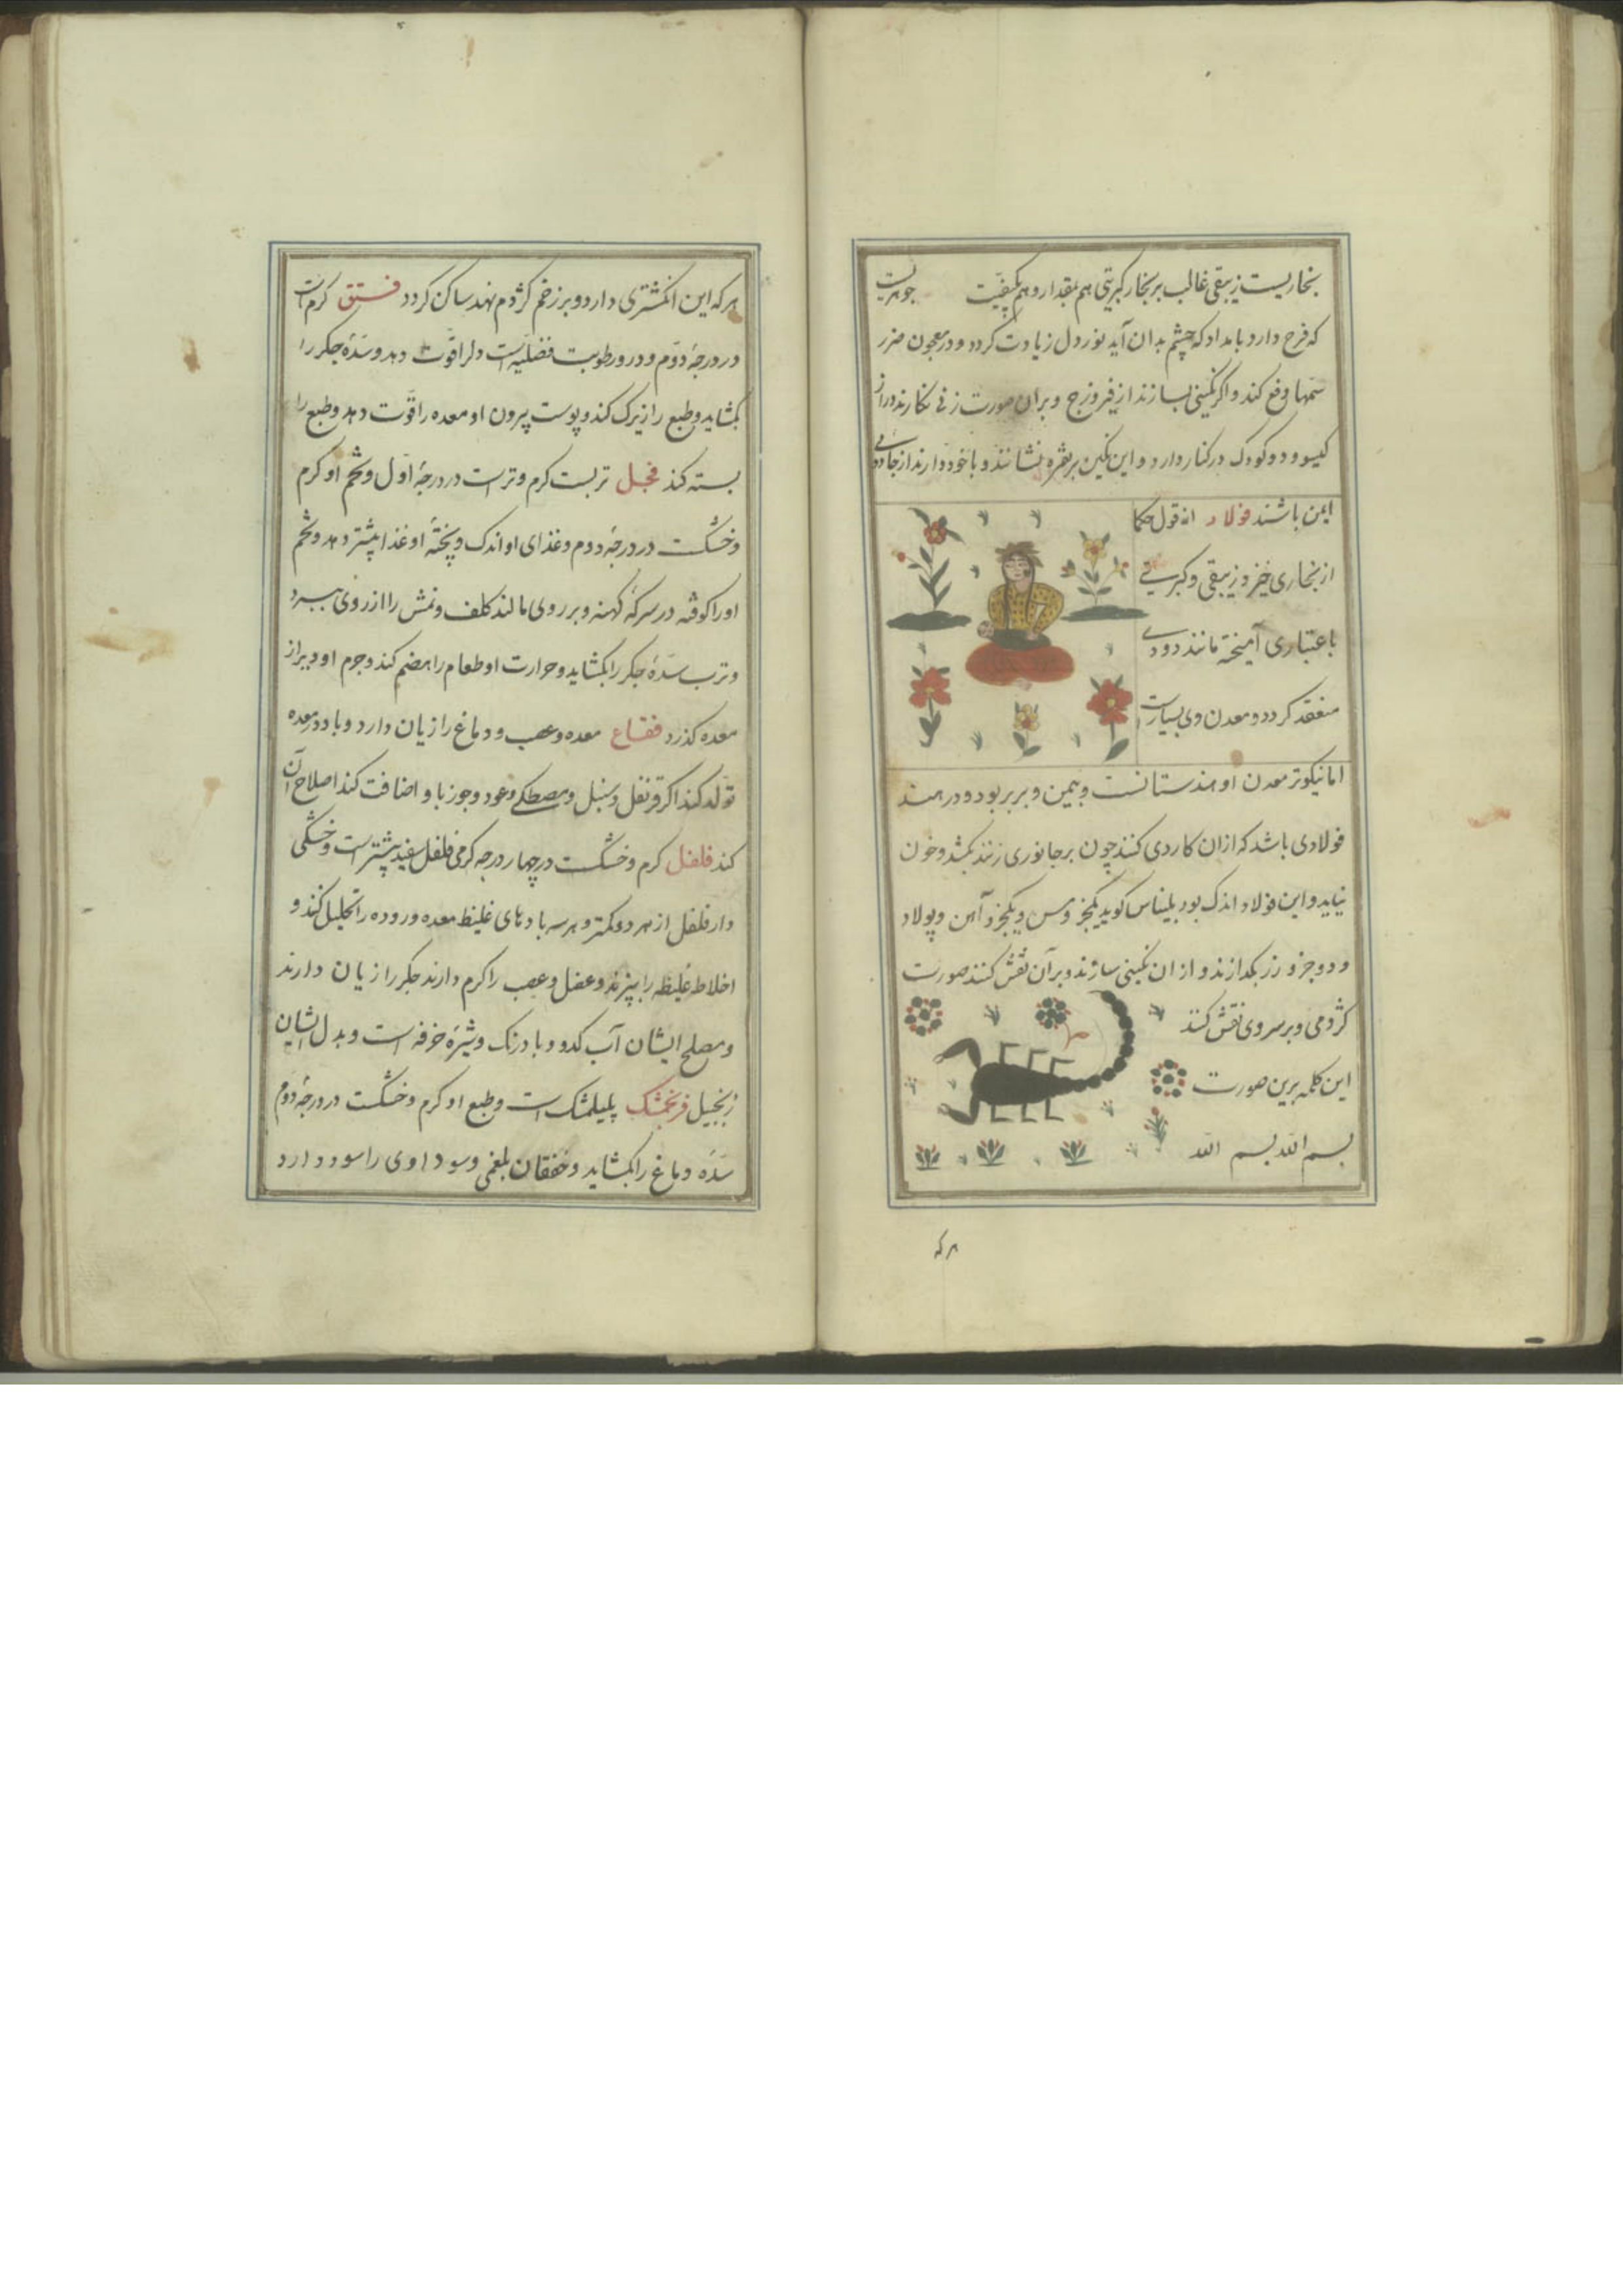 بخاریست زیبقی غالب بر بخار کبریتی هم بمقدار و هم بکیفیت جوهریست
که فرح دارد بامداد که چشم بدان آید نور دل زیادت کردد و در معجون ضرر
سمها دفع کند و اکر نکینی بسازند از فیروزج و بران صورت زنی نکارند دراز
کیسو و دو کودک در کنار دارد و این نکین بر نقره نشانند و با خود دارند از جادویی
ایمن باشند فولاد از قول حکما
از بخاری خیزد زیبقی و کبریتی
باعتباری آمیخته مانند دودی
منعقد کردد و معدن وی بسیارست
اما نیکوتر معدن او هندستانست و بیمن و بربر بود و در هند
فولادی باشد که ازان کاردی کنند چون بر جانوری زنند بکشد و خون
نیاید و این فولاد اندک بود بلیناس کوید یکجزو مس و یکجزو آهن و پولاد
و دو جزو زر بکدازند و از ان نکینی سازند و بر آن نقش کنند صورت
کژدمی و بر سر وی نقش کنند
این کلمه برین صورت
بسم الله بسم الله
هر که
هر که این انکشتری دارد و بر زخم کژدم نهد ساکن کردد فستق کرم است
در درجهٔ دوم و درو رطوبت فضلیه است دلرا قوت دهد و سدهٔ جکر را
بکشاید و طبع را زیرک کند و پوست بیرون او معده را قوت دهد و طبع را
بسته کند فجل تربست کرم و ترست در درجهٔ اول و تخم او کرم
و خشکست در درجهٔ دوم و غذای او اندک و پختهٔ او غذا بیشتر دهد و تخم
او را کوفته در سرکهٔ کهنه و بر روی مالند کلف و نمش را از روی ببرد
و ترب سدهٔ جکر را بکشاید و حرارت او طعام را هضم کند و جرم او دیر از
معده کذرد فقاع معده و عصب و دماغ را زیان دارد و باد در معده
تولد کند اکر قرنفل و سنبل و مصطکی و عود و جوز با او اضافت کند اصلاح آن
کند فلفل کرم و خشکست در چهار درجه کرمی فلفل سفید بیشترست و خشکی
دارفلفل از هر دو کمتر و هر سه بادهای غلیظ معده و روده را تحلیل کند و
اخلاط غلیظه را بپزند و عضل و عصب را کرم دارند جکر را زیان دارند
و مصلح ایشان آب کدو و بادرنک و شیرهٔ خرفه است و بدل ایشان
زنجبیل فرنجمشک پلیلمشک است و طبع او کرم و خشکست در درجهٔ دوم
سدهٔ دماغ را بکشاید و خفقان بلغمی و سوداوی را سود دارد